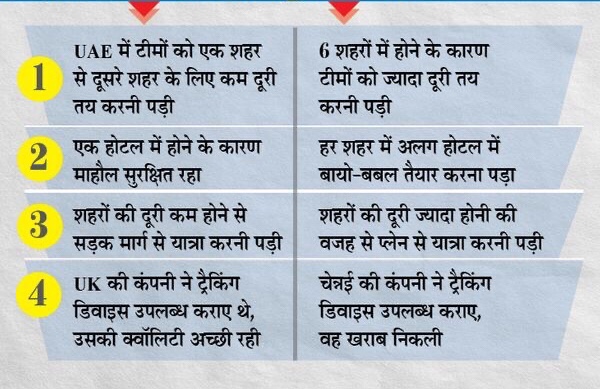 1
UAE में टीमों को एक शहर
से दूसरे शहर के लिए कम दूरी
तय करनी पड़ी
6 शहरों में होने के कारण
टीमों को ज्यादा दूरी तय
करनी पड़ी
2
एक होटल में होने के कारण
माहौल सुरक्षित रहा
हर शहर में अलग होटल में
बायो-बबल तैयार करना पड़ा
3
शहरों की दूरी कम होने से
सड़क मार्ग से यात्रा करनी पड़ी
शहरों की दूरी ज्यादा होनी की
वजह से प्लेन से यात्रा करनी पड़ी
4
UK की कंपनी ने ट्रैकिंग
डिवाइस उपलब्ध कराए थे,
उसकी क्वॉलिटी अच्छी रही
चेन्नई की कंपनी ने ट्रैकिंग
डिवाइस उपलब्ध कराए,
वह खराब निकली